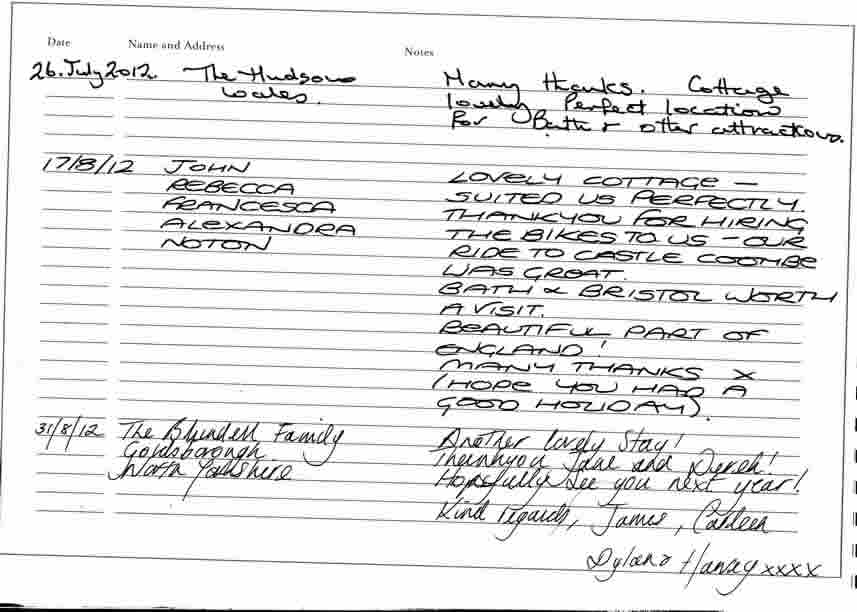 Date Name and Address Notes
26.July 2012. The Hudsons Many thanks. Cottage
Wales. lovely Perfect location
for Bath & other attractions.
17/8/12 JOHN LOVELY COTTAGE –
REBECCA SUITED US PERFECTLY.
FRANCESCA THANKYOU FOR HIRING
ALEXANDRA THE BIKES TO US – OUR
NOTON RIDE TO CASTLE COOMBE
WAS GREAT.
BATH & BRISTOL WORTH
A VISIT.
BEAUTIFUL PART OF
ENGLAND!
MANY THANKS X
(HOPE YOU HAD A
GOOD HOLIDAY).
31/8/12 The Blundell Family Another lovely Stay!
Goldsborough Thankyou Jane and Derek!
North Yorkshire Hopefully see you next year!
Kind regards, James,
Dylan & Harvey xxxx